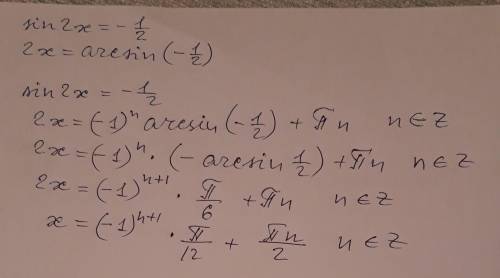 sin 2x = - 1/2
2x = arcsin (- 1/2)
sin 2x = - 1/2
2x = (-1)^n arcsin (- 1/2) + πn   n ∈ Z
2x = (-1)^n · (- arcsin 1/2) + πn   n ∈ Z
2x = (-1)^(n+1) · π/6 + πn   n ∈ Z
x = (-1)^(n+1) · π/12 + πn/2   n ∈ Z